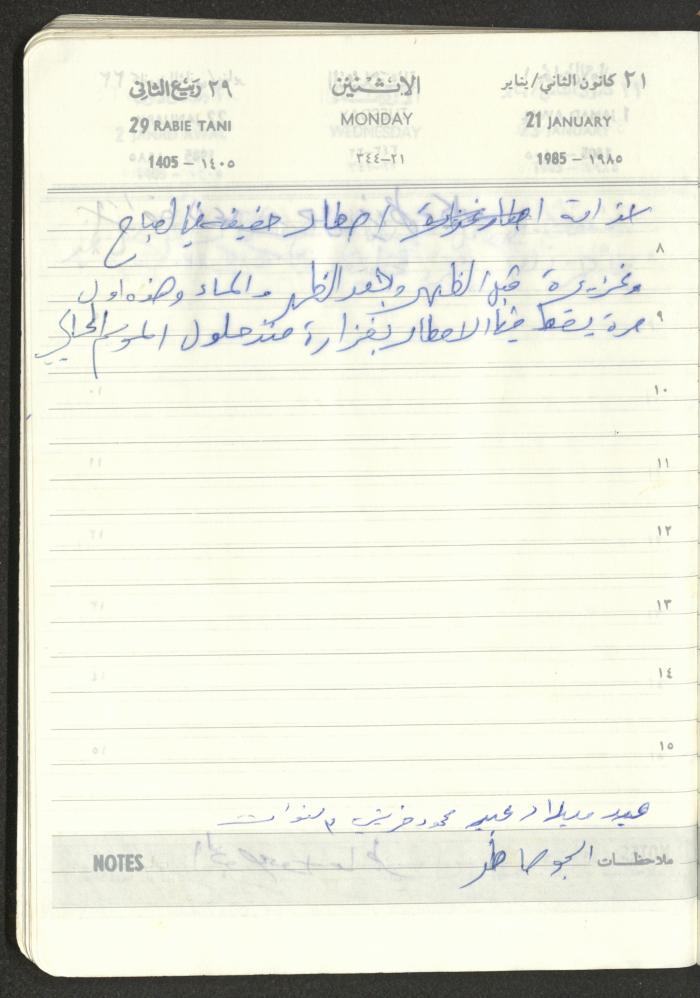 ٢١ كانون الثاني / يناير
الاثنين
٢٩ ربيع الثاني
21 JANUARY
MONDAY
29 RABIE TANI
1985 – ١٩٨٥
٢١–٣٤٤
1405 – ١٤٠٥
امطار غزيرة / امطار خفيفة في الصباح
٨
وغزيرة قبل الظهر وبعد الظهر والمساء وهذه اول
٩
مرة يسقط فيها الامطار بغزارة منذ حلول الموسم الحالي
١٠
١١
١٢
١٣
١٤
١٥
عيد ميلاد عبير محمود ٣ سنوات
ملاحظات الجو ماطر
NOTES